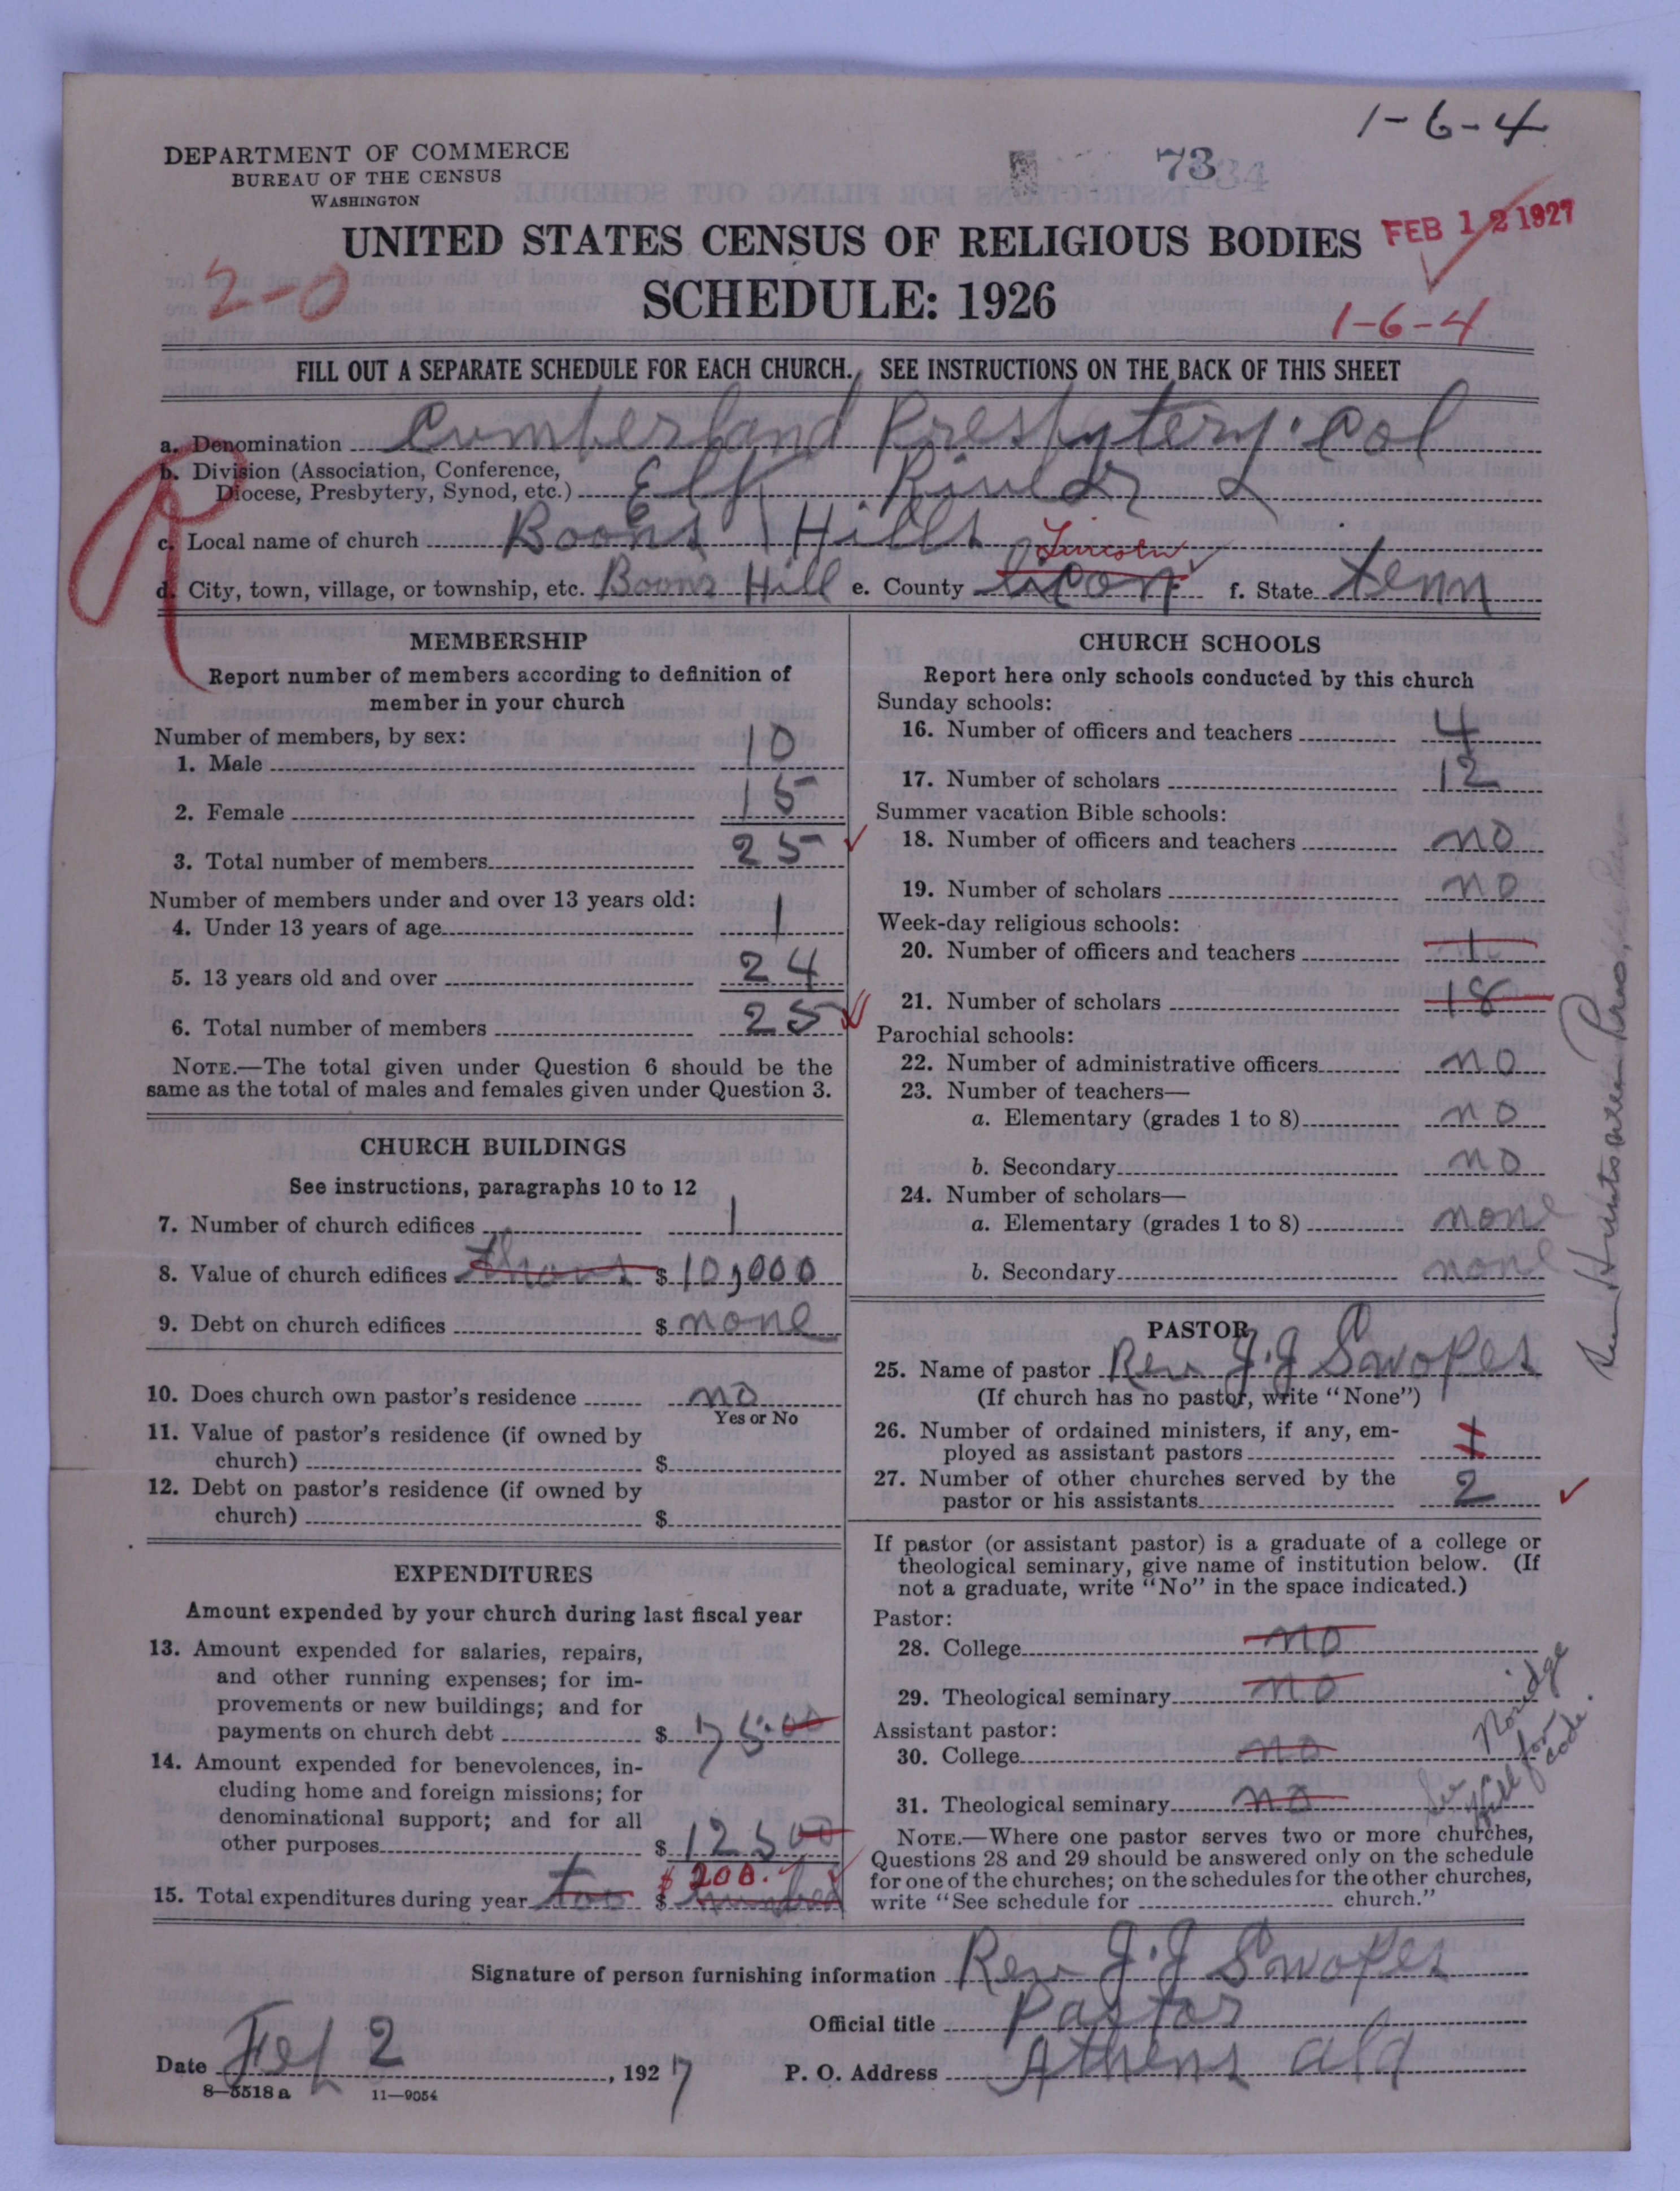 1-6-4
DEPARTMENT OF COMMERCE
BUREAU OF THE CENSUS
WASHINGTON
73
UNITED STATES CENSUS OF RELIGIOUS BODIES
FEB 12 1927
2-0
SCHEDULE: 1926
1-6-4
FILL OUT A SEPARATE SCHEDULE FOR EACH CHURCH. SEE INSTRUCTIONS ON THE BACK OF THIS SHEET
a. Denomination Cumberland Presbytery. Col
b. Division (Association, Conference,
Diocese, Presbytery, Synod, etc.) Elk River
c. Local name of church Boons Hills
Lincoln
d. City, town, village, or township, etc. Boons Hill e. County f. State tenn
MEMBERSHIP
Report number of members according to definition of
member in your church
Number of members, by sex:
1. Male 10
2. Female 15
3. Total number of members 25
Number of members under and over 13 years old:
4. Under 13 years of age 1
5. 13 years old and over 24
6. Total number of members 25
NOTE.—The total given under Question 6 should be the
same as the total of males and females given under Question 3.
CHURCH BUILDINGS
See instructions, paragraphs 10 to 12
7. Number of church edifices 1
8. Value of church edifices thous $ 10,000
9. Debt on church edifices $ none
10. Does church own pastor's residence no
Yes or No
11. Value of pastor's residence (if owned by
church) $
12. Debt on pastor's residence (if owned by
church) $
EXPENDITURES
Amount expended by your church during last fiscal year
13. Amount expended for salaries, repairs,
and other running expenses; for im-
provements or new buildings; and for
payments on church debt $ 75.00
14. Amount expended for benevolences, in-
cluding home and foreign missions; for
denominational support; and for all
other purposes $ 125 00
$ 200.
15. Total expenditures during year too $ hundred
CHURCH SCHOOLS
Report here only schools conducted by this church
Sunday schools:
16. Number of officers and teachers 4
17. Number of scholars 12
Summer vacation Bible schools:
18. Number of officers and teachers no
19. Number of scholars no
Week-day religious schools:
20. Number of officers and teachers 1
21. Number of scholars 18
Parochial schools:
22. Number of administrative officers no
23. Number of teachers—
a. Elementary (grades 1 to 8) no
b. Secondary no
24. Number of scholars—
a. Elementary (grades 1 to 8) none
b. Secondary none
PASTOR
25. Name of pastor Rev J.J Swopes
(If church has no pastor, write "None")
26. Number of ordained ministers, if any, em-
ployed as assistant pastors 1
27. Number of other churches served by the
pastor or his assistants 2
If pastor (or assistant pastor) is a graduate of a college or
theological seminary, give name of institution below. (If
not a graduate, write "No" in the space indicated.)
Pastor:
28. College no
29. Theological seminary no
Assistant pastor:
30. College no
31. Theological seminary no
See
Hill for
code.
NOTE.—Where one pastor serves two or more churches,
Questions 28 and 29 should be answered only on the schedule
for one of the churches; on the schedules for the other churches,
write "See schedule for church."
Signature of person furnishing information Rev J.J Swopes
Official title Pastor
Date Feb 2, 1927 P. O. Address Athens ala
8—5518 a 11—9054